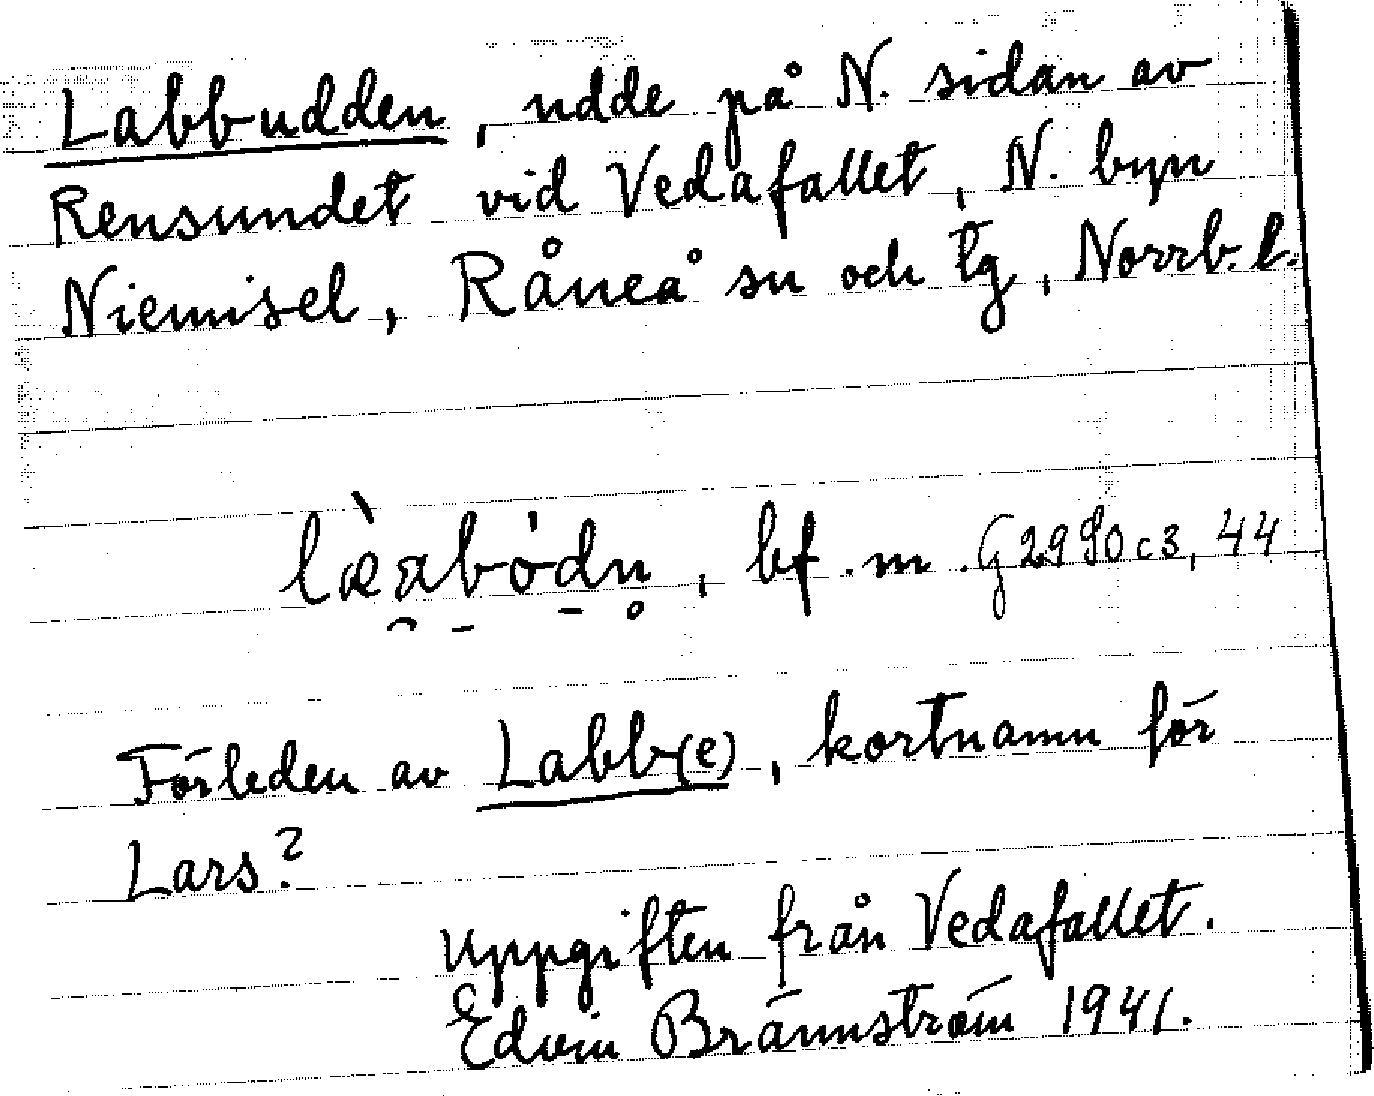 Labbudden, udde på N. sidan av
Rensundet vid Vedafallet, N. byn
Niemisel, Råneå sn och tg, Norrb. l.
bf. m. G 2990 c3, 44
Förleden av Labb(e), kortnamn för
Lars?
Uppgiften från Vedafallet.
Edvin Brännström 1941.